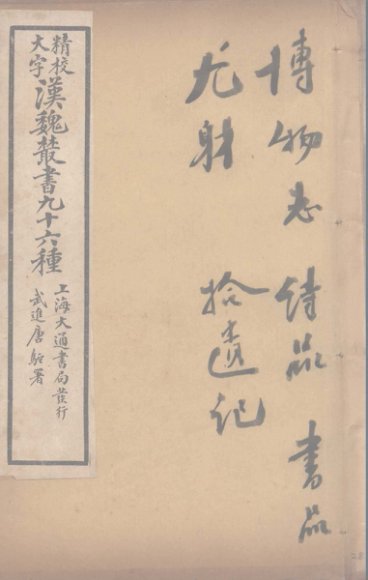 博物志 詩品 書品
尤射 拾遺記
精校
大字
漢魏叢書九十六種
上海大通書局發行
武進唐駝署